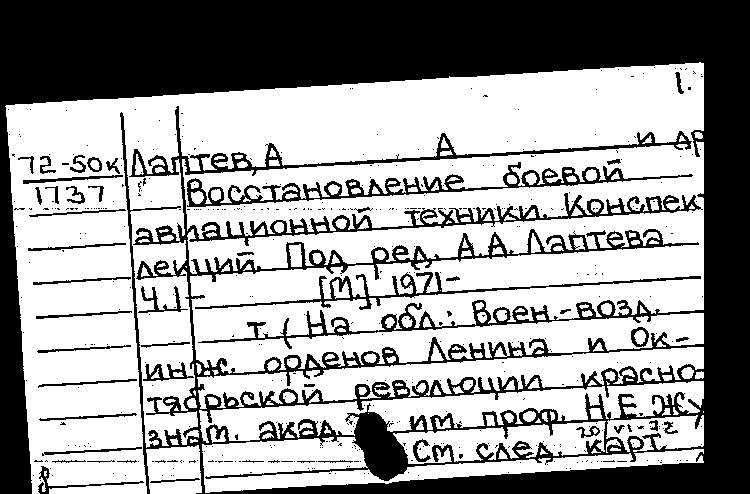 1.
72-50к Лаптев, А А и др
1737 Восстановление боевой
авиационной техники. Конспек
лекций. Под ред. А.А. Лаптева
Ч.1- [М.], 1971-
т. (На обл.: Воен.-возд.
инж. орденов Ленина и Ок-
тябрьской революции красно-
знам. акад. им. проф. Н.Е. Жу
20/VI-72
См. след. карт.